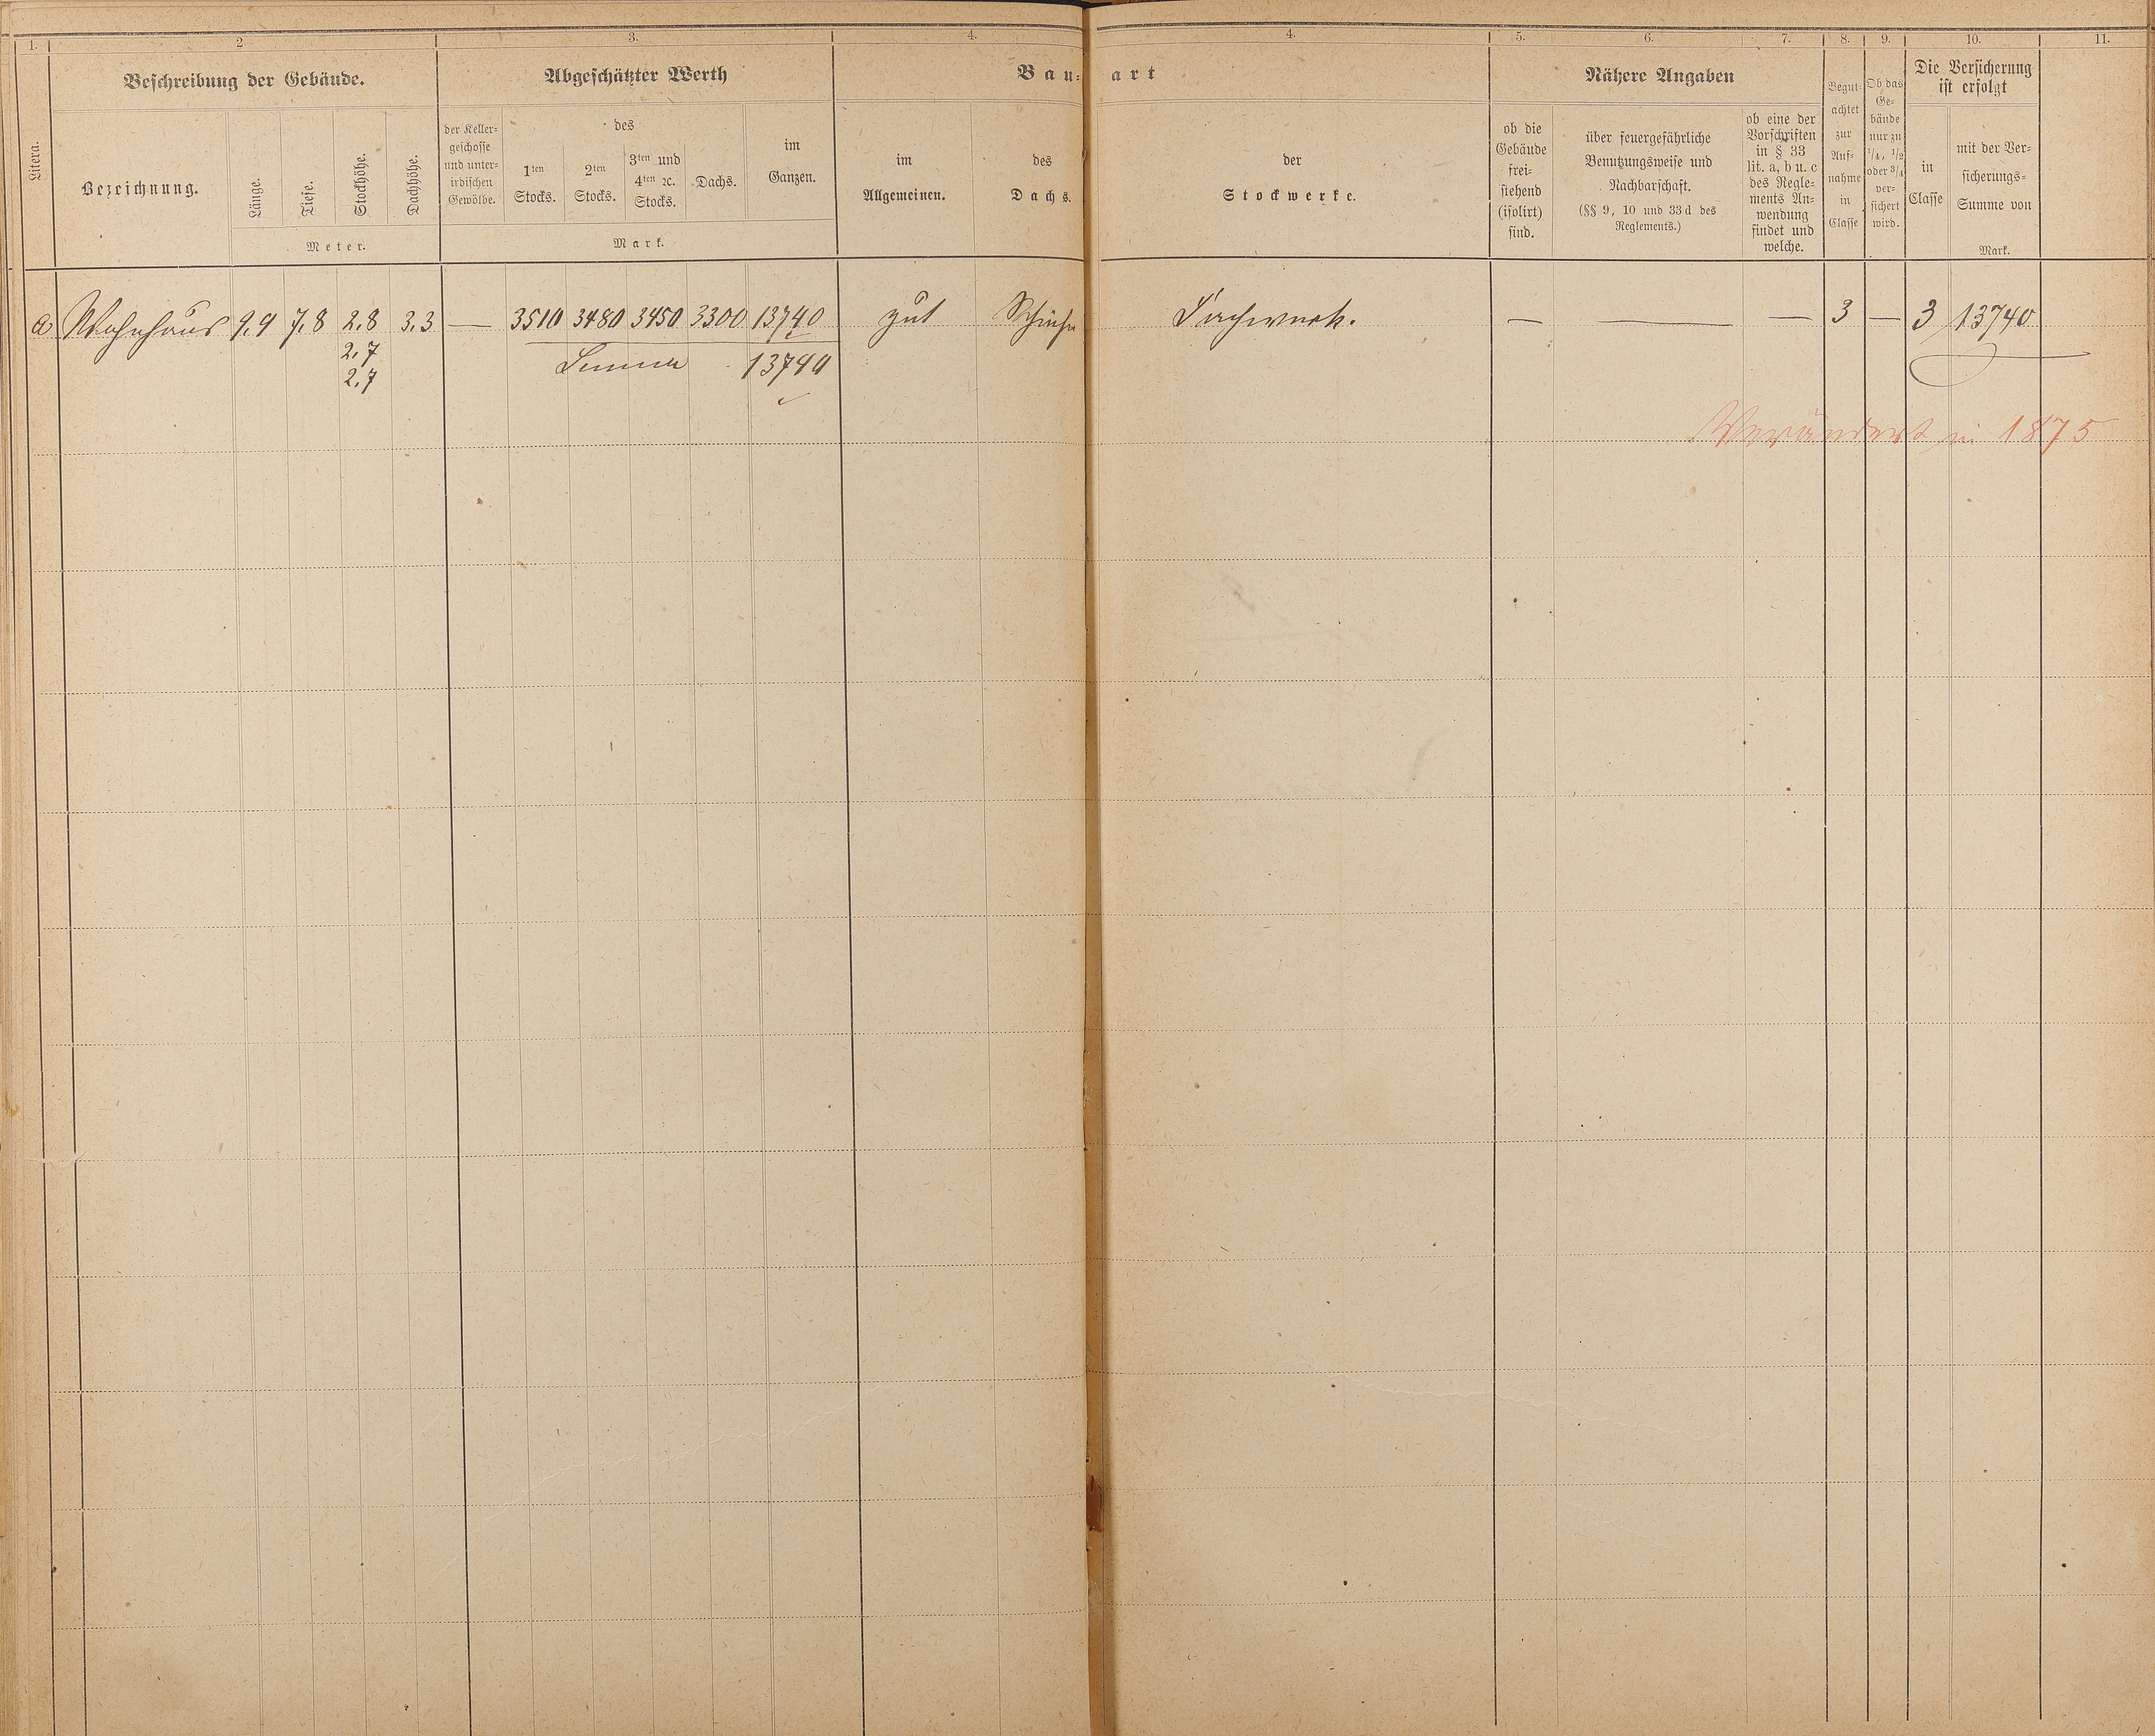 1. 2 3. 4. 4. 5. 6. 7. 8. 9. 10. 11.
Litera.
Beschreibung der Gebäude.
Bezeichnung.
Länge.
Tiefe.
Stockhöhe.
Dachhöhe.
Meter.
Abgeschätzter Werth
der Keller-
geschosse
und unter-
irdischen
Gewölbe.
des
1ten
Stocks.
2ten
Stocks.
3ten und
4ten ꝛc.
Stocks.
Dachs.
im
Ganzen.
Mark.
Bau-art
im
Allgemeinen.
des
Dachs.
der
Stockwerke.
Nähere Angaben
ob die
Gebäude
frei-
stehend
(isolirt)
sind.
über feuergefährliche
Benutzungsweise und
Nachbarschaft.
(§§ 9, 10 und 33 d des
Reglements.)
ob eine der
Vorschriften
in § 33
lit. a, b u. c
des Regle-
ments An-
wendung
findet und
welche.
Begut-
achtet
zur
Auf-
nahme
in
Classe
Ob das
Ge-
bäude
nur zu
1/4, 1/2
oder 3/4
ver-
sichert
wird.
Die Versicherung
ist erfolgt
in
Classe
mit der Ver-
sicherungs-
Summe von
Mark.
a Wohnhaus 9.9 7.8 2.8 3.3 — 3510 3480 3450 3300 13740 gut Schiefer Fachwerk. — — — 3 — 3 13740
2.7
2.7
Summa 13740
Verändert in 1875